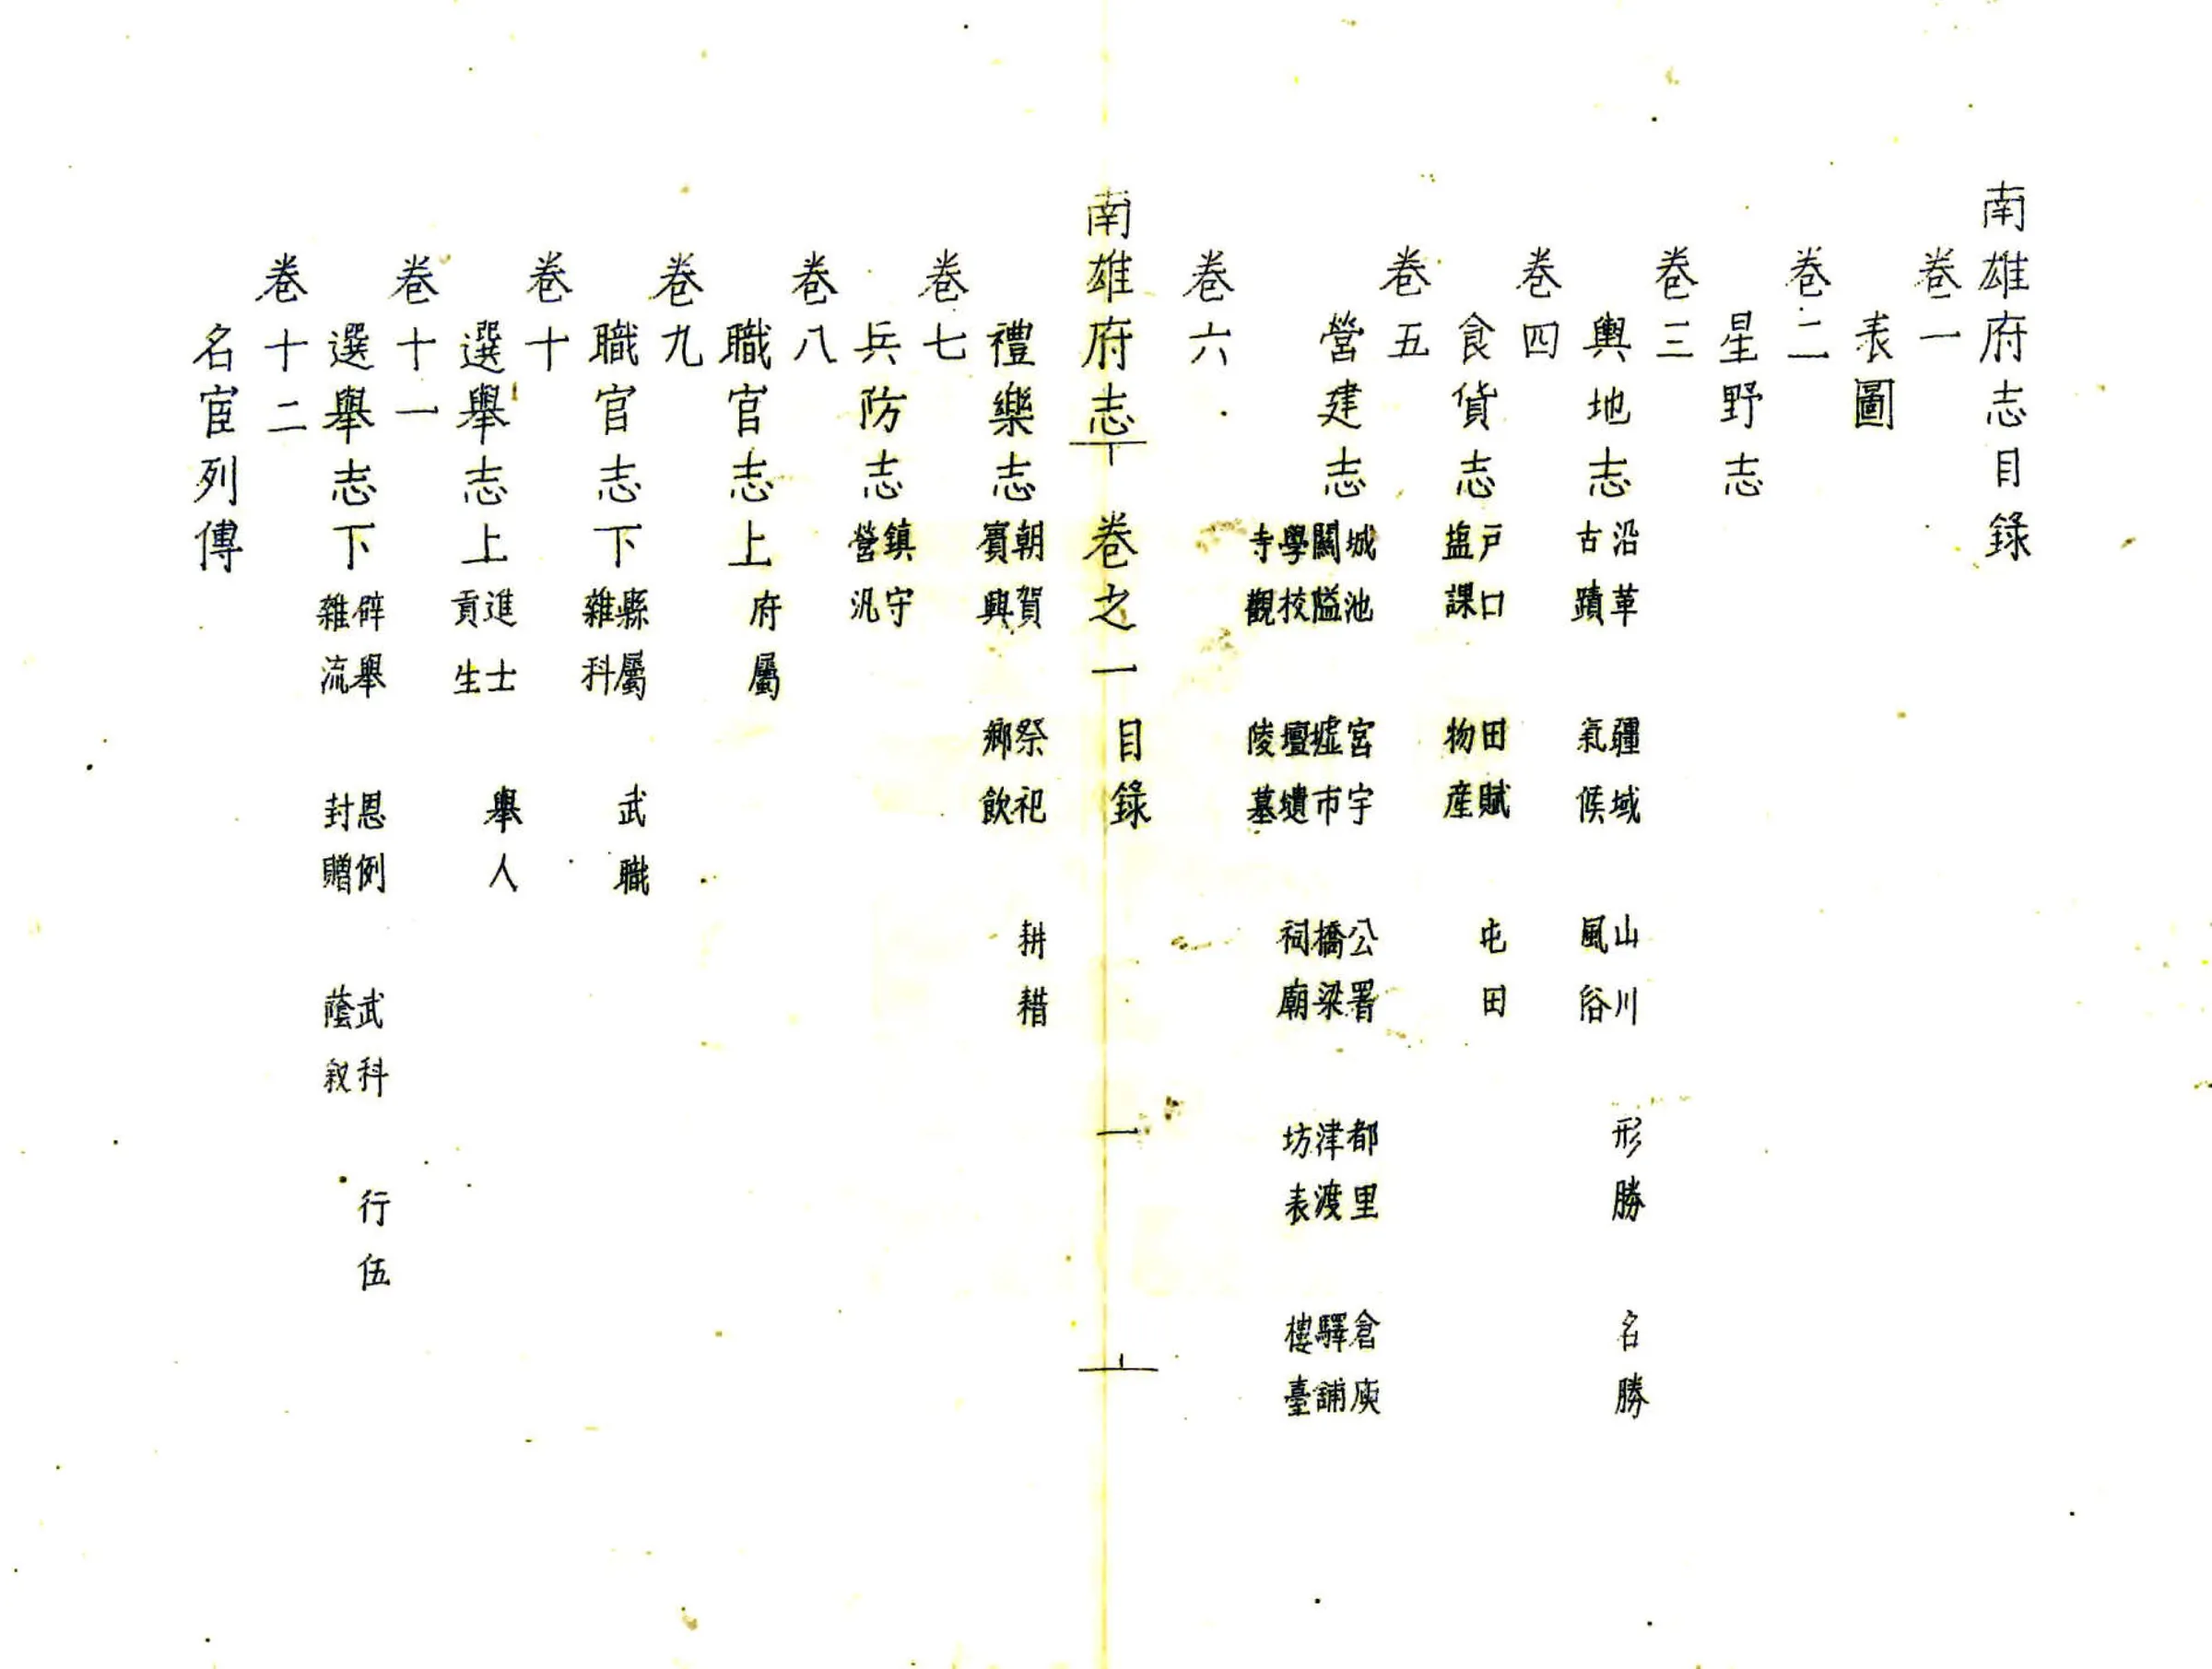 南雄府志目錄
卷一
表圖
卷二
星野志
卷三
輿地志 沿革 疆域 山川 形勝 名勝
古蹟 氣候 風俗
卷四
食貨志 戶口 田賦 屯田
塩課 物産
卷五
營建志 城池 宮宇 公署 都里 倉庾
關隘 墟市 橋梁 津渡 驛舖
學校 壇壝 祠廟 坊表 樓臺
寺觀 陵墓
卷六
南雄府志 卷之一 目錄 一
禮樂志 朝賀 祭祀 耕耤
賓興 鄉飲
卷七
兵防志 鎮守
營汛
卷八
職官志上 府屬
卷九
職官志下 縣屬 武職
雜科
卷十
選舉志上 進士 舉人
貢生
卷十一
選舉志下 辟舉 恩例 武科 行伍
雜流 封贈 蔭叙
卷十二
名宦列傳